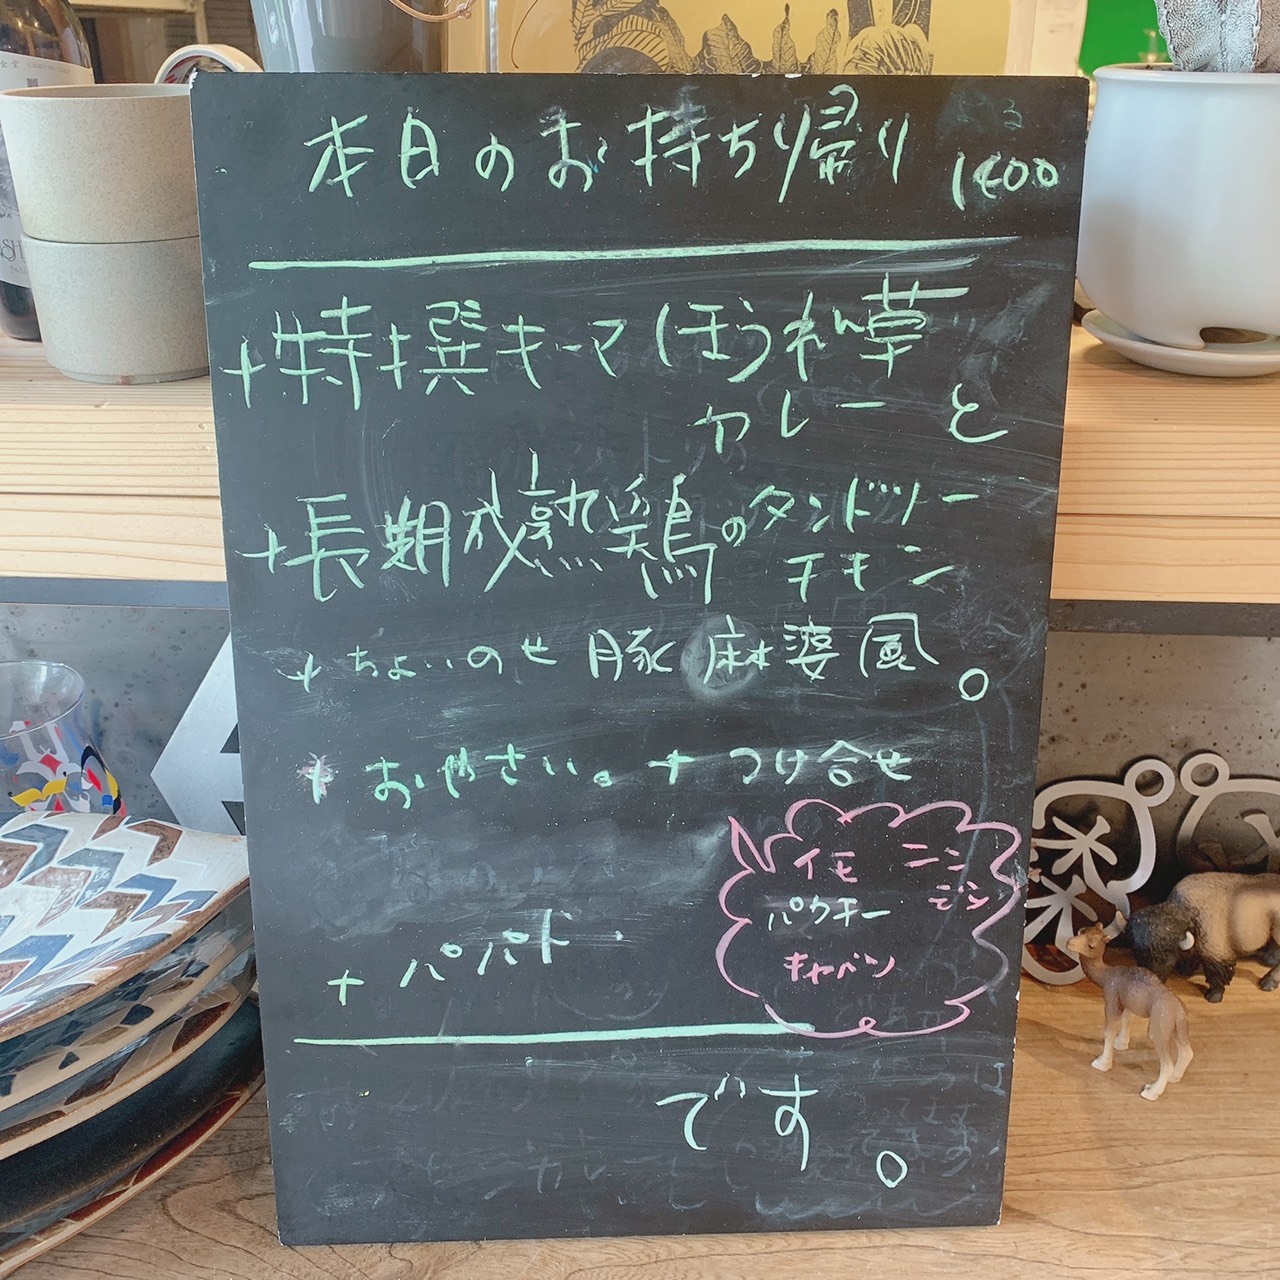 本日のお持ち帰り 1400
+特撰キーマ ほうれん草
カレー と
+長期成熟鶏のタンドリー
チキン
+ちょいのせ 豚 麻婆 風。
+おやさい。+つけ合せ
イモ ニン
ジン
パクチー
キャベツ
+パパド
です。